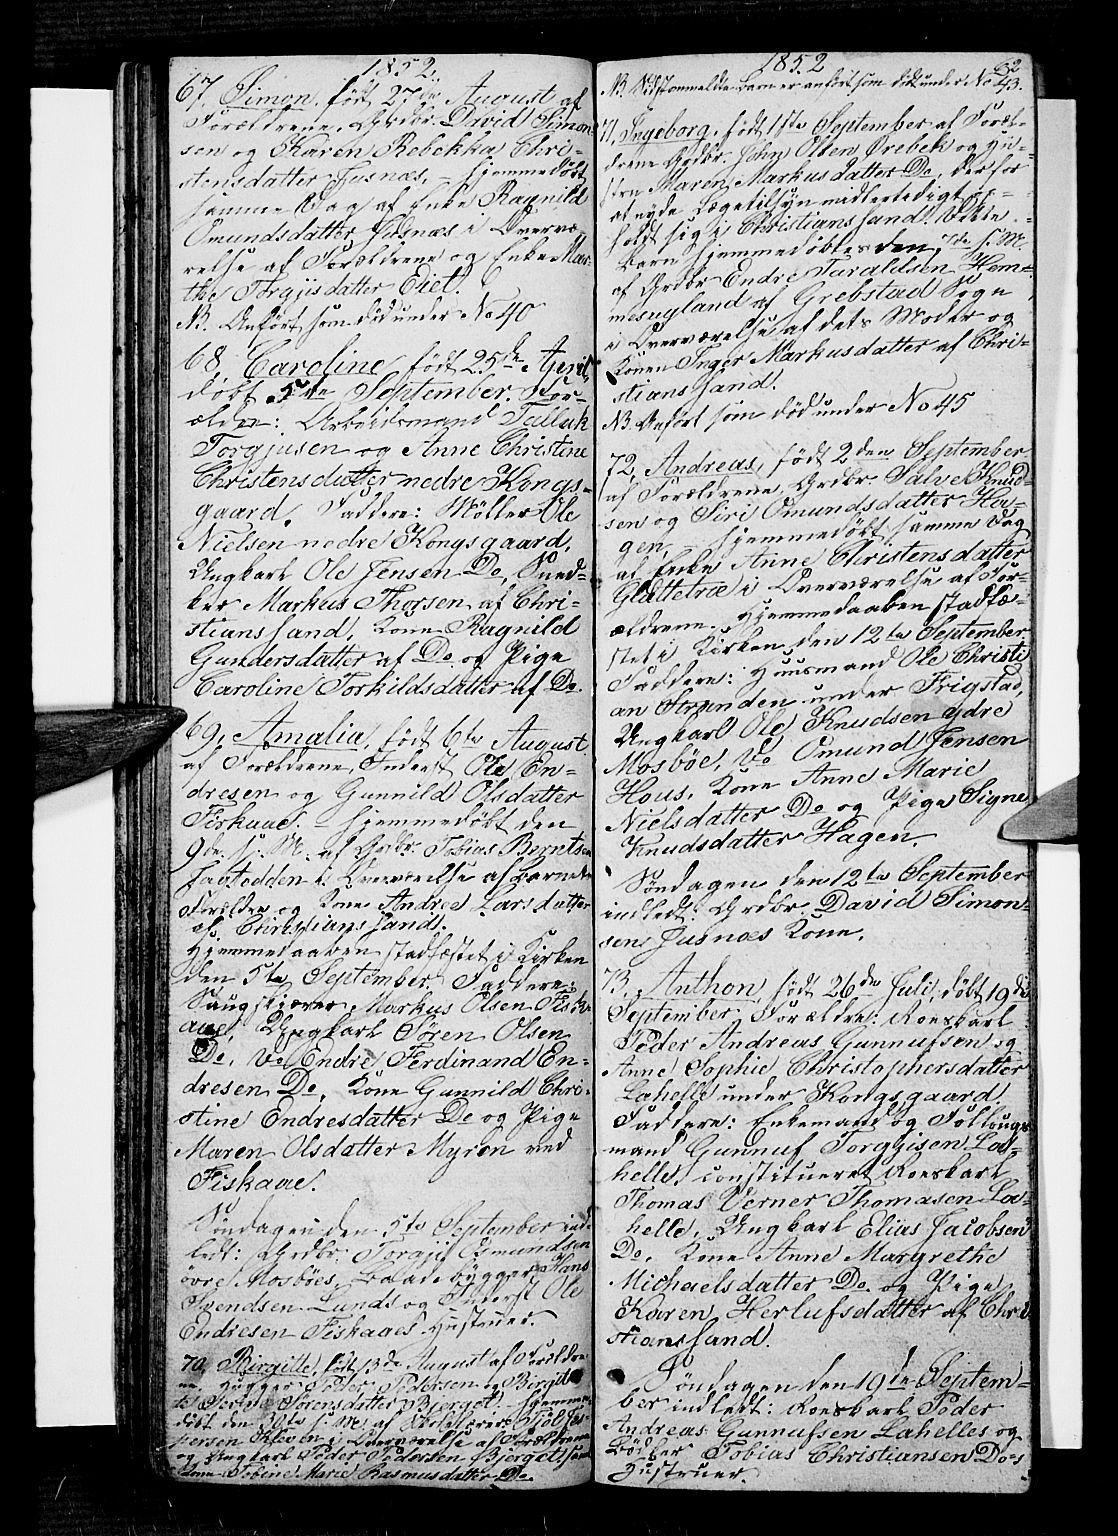 1852.
67, Simon, født 27de August af
Forældrene, Grdbr. David Simon-
sen og Karen Rebekka Chri-
stensdatter Jusnæs, – hjemmedøbt
samme Dag af Enke Ragnild
Omundsdatter Jusnæs i Overvæ-
relse af Forældrene og Enke Mar-
the Torgjisdatter Eiet.
NB. Anført som død under No 40
68, Caroline, født 25de April,
døbt 5te September. For-
ældre: Arbeidsmand Tallak
Torgjusen og Anne Christine
Christensdatter nedre Kongs-
gaard. Faddere: Møller Ole
Nielsen nedre Kongsgaard,
Ungkarl Ole Jensen Do, Sned-
ker Markus Thorsen af Chri-
stianssand, Kone Ragnild
Gundersdatter af Do og Pige
Caroline Torkildsdatter af Do.
69, Amalia, født 6te August
af Forældrene, Inderst Ole En-
dresen og Gunnild Olsdatter
Fiskaae. – Hjemmedøbt den
9de s. M. af Grdbr. Tobias Berntsen
Fagtodden i Overværelse af Barnets
Forældre og Kone Andrea Larsdatter
af Christianssand.
Hjemmedaaben stadfæstet i Kirken
den 5te September. Faddere:
Saugskjærer Markus Olsen Fisk-
aae, Ungkarl Søren Olsen
Do, Do Endre Ferdinand En-
dresen Do, Kone Gunnild Chri-
stine Endresdatter Do og Pige
Maren Olsdatter Myren ved
Fiskaae.
Søndagen den 5te September ind-
ledt: Grdbr. Torgjii Osmundsen
øvre Mosbøes, Baadebygger Hans
Svendsen Lunds og Inderst Ole
Endresen Fiskaaes Hustruer.
70, Birgitte, født 13de August af Forældre-
ne, Peder Pedersen og Birgit-
te Sørensdatter Bjerget. – Hjemme-
døbt den 30te s. M. af Skolelærer
persen Kleven i Overværelse af Forældrene
og Ungkarl Peder Pedersen Bjerget, samt
Kone Tobine Marie Rasmusdatter Do.
1852
62
NB. Sidstanmeldte Barn er anført som død under No 43.
71, Ingeborg, født 1ste September af Foræl-
drene Grdbr. John Olsen Ørebek og Hu-
stru Maren Markusdatter Do, der for
at nyde Lægetilsyn midlertidigt op-
holdt sig i Christianssand. Dette
Barn hjemmedøbtes den 7de s. M.
af Grdbr Endre Taraldsen Hem-
mesugland af Grebstad Sogn
i Overværelse af dets Moder og
Konen Inger Markusdatter af Chri-
stianssand.
NB. Anført som død under No 45
72, Andreas, født 2den September
af Forældrene, Grdbr. Salve Knud-
sen og Siri Omundsdatter Ha-
gen, – hjemmedøbt samme Dag
af Enke Anne Christensdatter
Glattetræ i Overværelse af For-
ældrene. Hjemmedaaben stadfæ-
stet i Kirken den 12te September
Faddere: Huusmand Ole Christi
an Stranden under Frigstad,
Ungkarl Ole Knudsen ydre
Mosbøe, Do Omund Jensen
Hous, Kone Anne Marie
Nielsdatter Do og Pige Signe
Knudsdatter Hagen.
Søndagen den 12te September
indledt: Grdbr. David Simon-
sens Jusnæs Kone.
73, Anthon, født 26de Juli, døbt 19de
September. Forældre: Roerskarl
Peder Andreas Gunnufsen og
Anne Sophie Christophersdatter
Lahelle under Kongsgaard.
Faddere: Enkemand og Følloug-
mand Gunnuf Torgjisen La-
helle, constitueret Roerskarl
Thomas Verner Thomasen La-
helle, Ungkarl Elias Jacobsen
Do, Kone Anne Margrethe
Michaelsdatter Do og Pige
Karen Herlufsdatter af Chri-
stianssand.
Søndagen den 19de Septem-
ber indledt: Roerskarl Peder
Andreas Gunnufsen Lahelles og
Bødker Tobias Christiansen Do's
Hustruer.